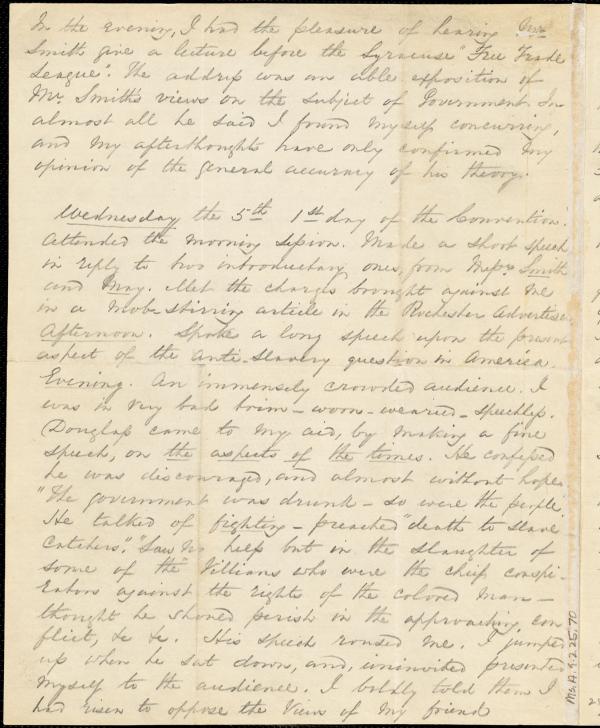 In the evening, I had the pleasure of hearing Mr.
Smith give a lecture before the Syracuse "Free Trade
League". The address was an able exposition of
Mr. Smith's views on the subject of Government. In
almost all he said I found myself concurring,
and my afterthoughts have only confirmed my
opinion of the general accuracy of his theory.
Wednesday the 5th 1st day of the Convention.
Attended the morning session. Made a short speech
in reply to two introductory ones, from Messrs Smith
and May. Met the charges brought against me
in a mob-stirring article in the Rochester Advertiser.
Afternoon. Spoke a long speech upon the present
aspect of the anti-slavery question in America.
Evening. An immensely crowded audience. I
was in very bad trim – worn – wearied – speechless.
Douglass came to my aid, by making a fine
speech, on the aspects of the times. He confessed
he was discouraged, and almost without hope.
"The government was drunk – so were the people."
He talked of fighting – preached "death to slave
catchers." "Saw no help but in the slaughter of
some of the" Villians who were the chief conspi-
rators against the rights of the colored man –
thought he should perish in the approaching con
flict, &c &c. His speech roused me. I jumped
up when he sat down, and, uninvited presented
myself to the audience. I boldly told them I
had risen to oppose the views of my friend
Ms.A.9.2.25.70